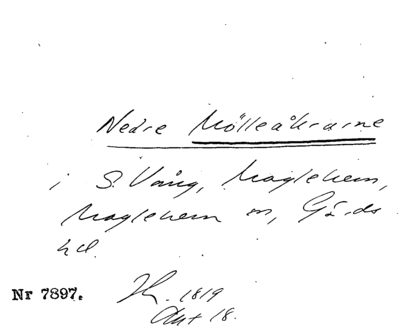 Nedre Mölleåkrarne
i S. Vång, Maglehem,
Maglehem sn, Gärds
hd.
Nr 7897.
1819
Akt 18.